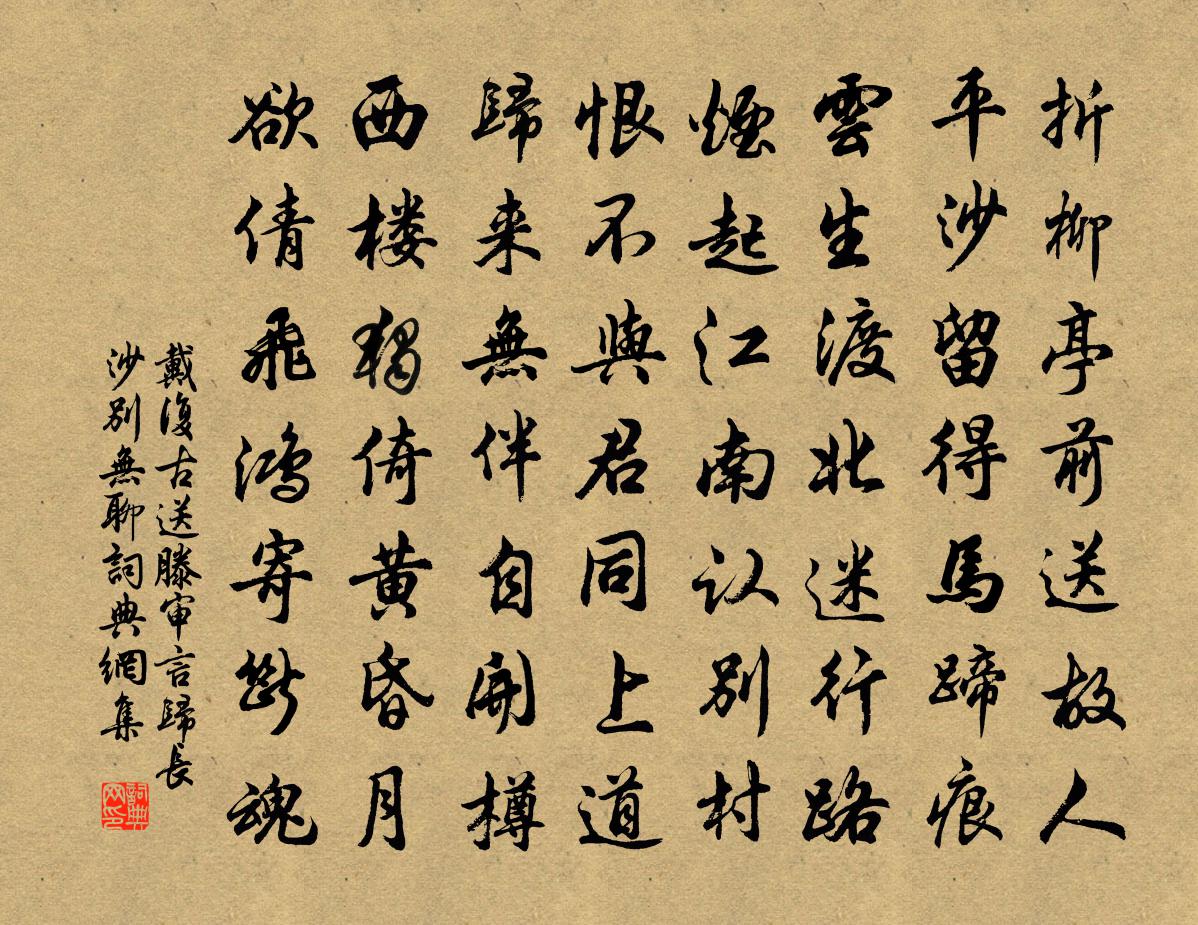 折柳亭前送故人
平沙留得馬蹄痕
雲生渡北迷行路
煙起江南认別村
恨不與君同上道
歸来無伴自開樽
西楼獨倚黄昏月
欲倩飛鴻寄斷魂
戴復古送滕审言歸長
沙別無聊詞典網集
詞典
网印